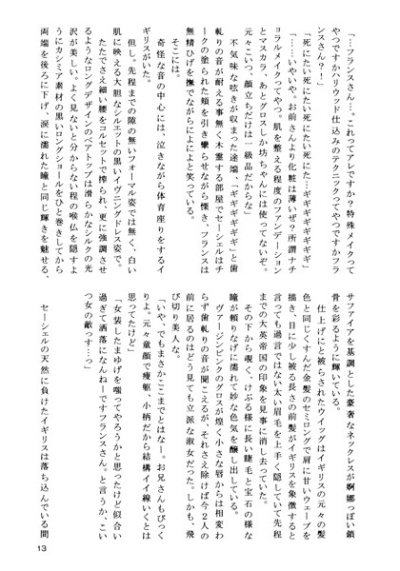 「…フランスさん…。これってアレですか？特殊メイクって
やつですかハリウッド仕込みのテクニックってやつですかフラ
ンスさん？！」
「死にたい死にたい死にたい死にた…ギギギギギギギ」
「……いやいや、お前さんより化粧は薄いぜ？所謂ナチ
ュラルメイクってやつ。肌を整える程度のファンデーション
とマスカラ、あとグロスしか坊ちゃんには使ってないぞ。
元々こいつ、顔立ちだけは一級品だからな」
不気味な呟きが収まった途端、「ギギギギギギ」と歯
軋りの音が耐える事無く木霊する部屋でセーシェルはチ
ークの塗られた頬を引き攣らせながら慄き、フランスは
無精ひげを撫でながらによによと笑っている。
そこには。
奇怪な音の中心には、泣きながら体育座りをするイ
ギリスがいた。
但し。先程までの隙の無いフォーマル姿では無く、白い
肌に映える大胆なシルエットの黒いイヴニングドレス姿で。
ただでさえ細い腰をコルセットで搾られ、更に強調させ
るようなロングデザインのベアトップは滑らかなシルクの光
沢が美しい。よく見ないと分からない程の喉仏を隠すよ
うにカシミア素材の黒いロングショールをひと巻きしてから
両端を後ろに下げ、涙に濡れた瞳と同じ輝きを魅せる、
サファイアを基調とした豪奢なネックレスが婀娜っぽい鎖
骨を彩るように輝いている。
仕上げにと被らされたウイッグはイギリスの元々の髪
色と同じくすんだ金髪のセミロングで肩に甘いウェーブを
描き、目に少し被る長さの前髪がイギリスを象徴すると
言っても過言ではない太い眉毛を上手く隠していて先程
までの大英帝国の印象を見事に消し去っていた。
その下から覗く、けぶる様に長い睫毛と宝石の様な
瞳が頼りなげに濡れて妙な色気を醸し出している。
ヴァージンピンクのグロスが煌く小さな唇からは相変わ
らず歯軋りの音が聞こえるが、それさえ除けば今２人の
前に居るのはどう見ても立派な淑女だった。しかも、飛
び切り美人な。
「いや、でもまさかここまでとはなー。お兄さんもびっく
りよ。元々童顔で痩躯、小柄だから結構イイ線いくとは
思ってたけど」
「女装したまゆげを嗤ってやろうかと思ったけど似合い
過ぎて洒落になんねーですフランスさん。と言うか、こい
つ女の敵っす…っ」
セーシェルの天然に負けたイギリスは落ち込んでいる間
13